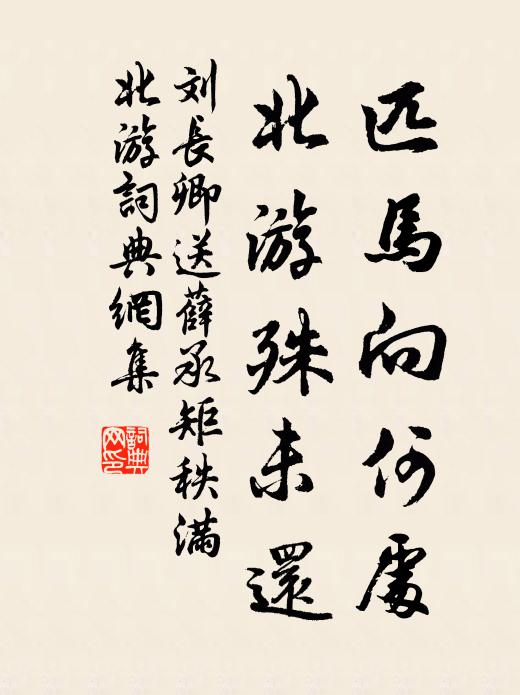 匹馬向何處
北游殊未還
刘長卿送薛承矩秩满
北游詞典網集
詞典网印